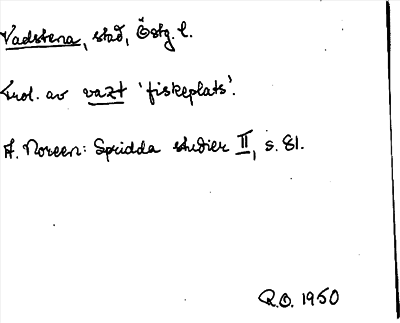 Vadstena, stad, Östg. l.
Inol. av vazt 'fiskeplats'.
A. Noreen: Spridda studier II, s. 81.
R.O. 1950